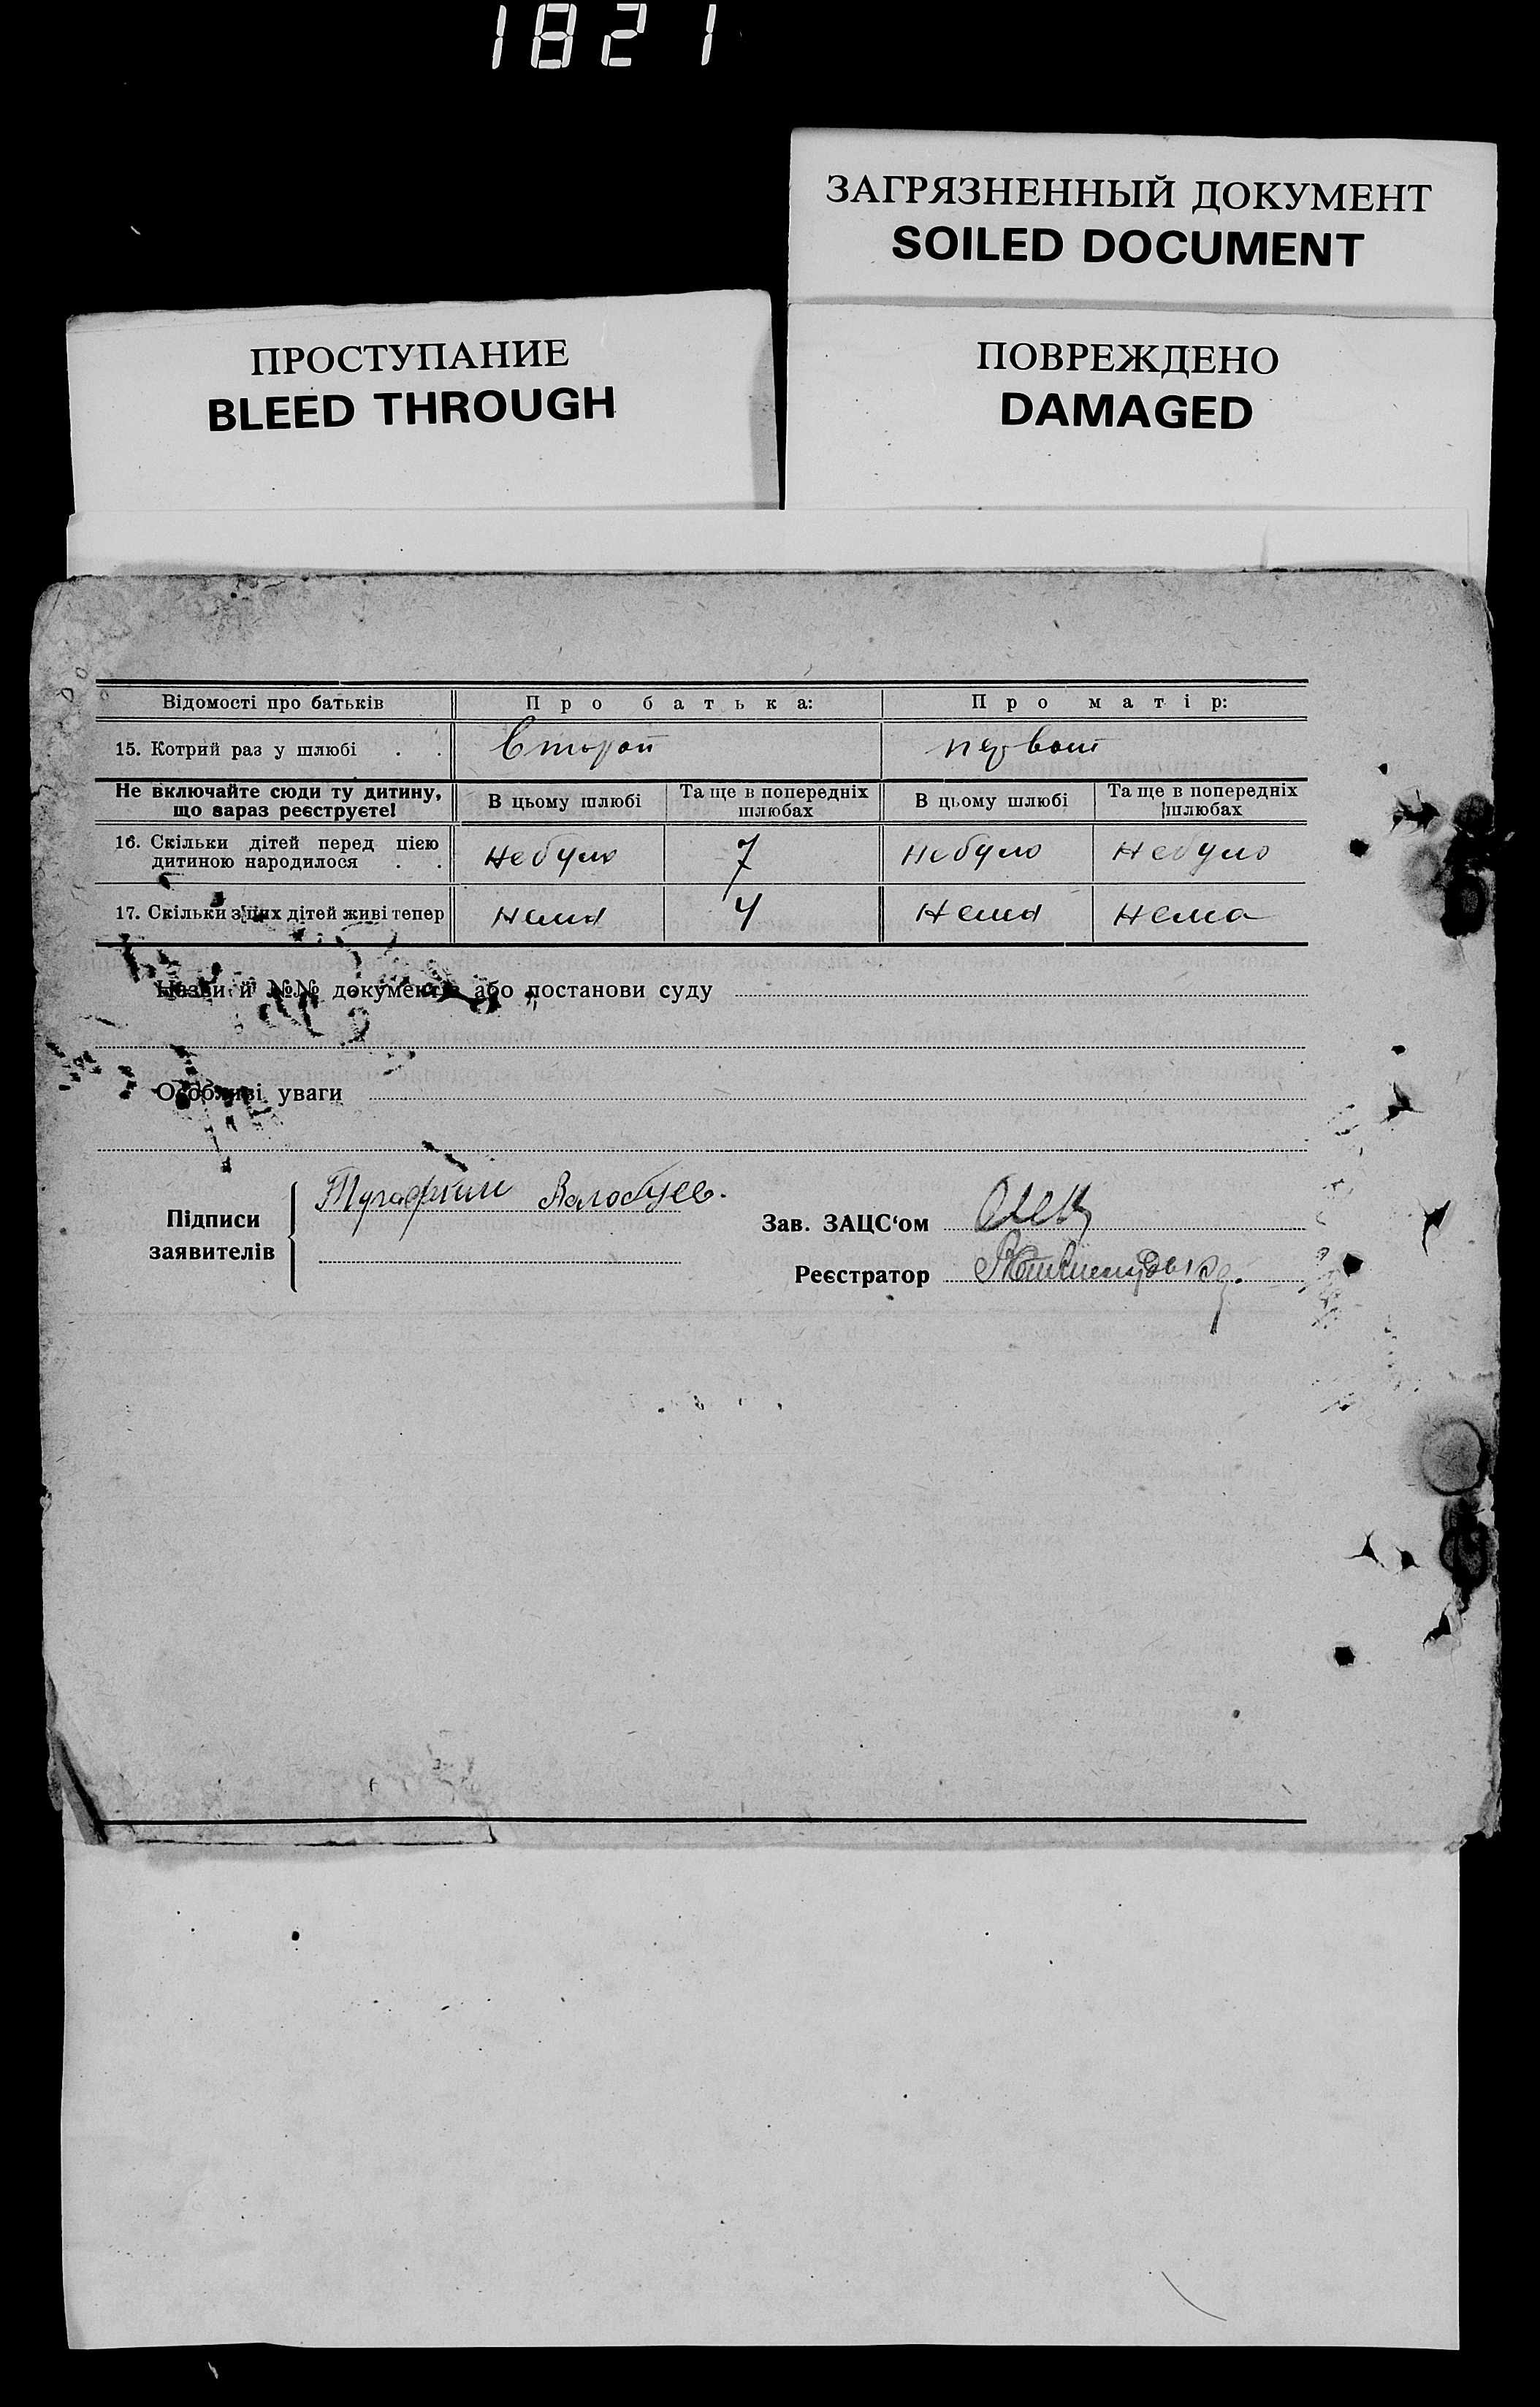 1821
ЗАГРЯЗНЕННЫЙ ДОКУМЕНТ
SOILED DOCUMENT
ПРОСТУПАНИЕ
BLEED THROUGH
ПОВРЕЖДЕНО
DAMAGED
Відомості про батьків Про батька: Про матір:
15. Котрий раз у шлюбі . . Второй первой
Не включайте сюди ту дитину, що зараз реєструєте! В цьому шлюбі Та ще в попередніх шлюбах В цьому шлюбі Та ще в попередніх шлюбах
16. Скільки дітей перед цією дитиною народилося . . небуло 7 небуло небуло
17. Скільки з цих дітей живі тепер нема 4 нема нема
Назви й №№ документів або постанови суду
Особливі уваги
Підписи заявителів
Зав. ЗАЦС‘ом
Реєстратор